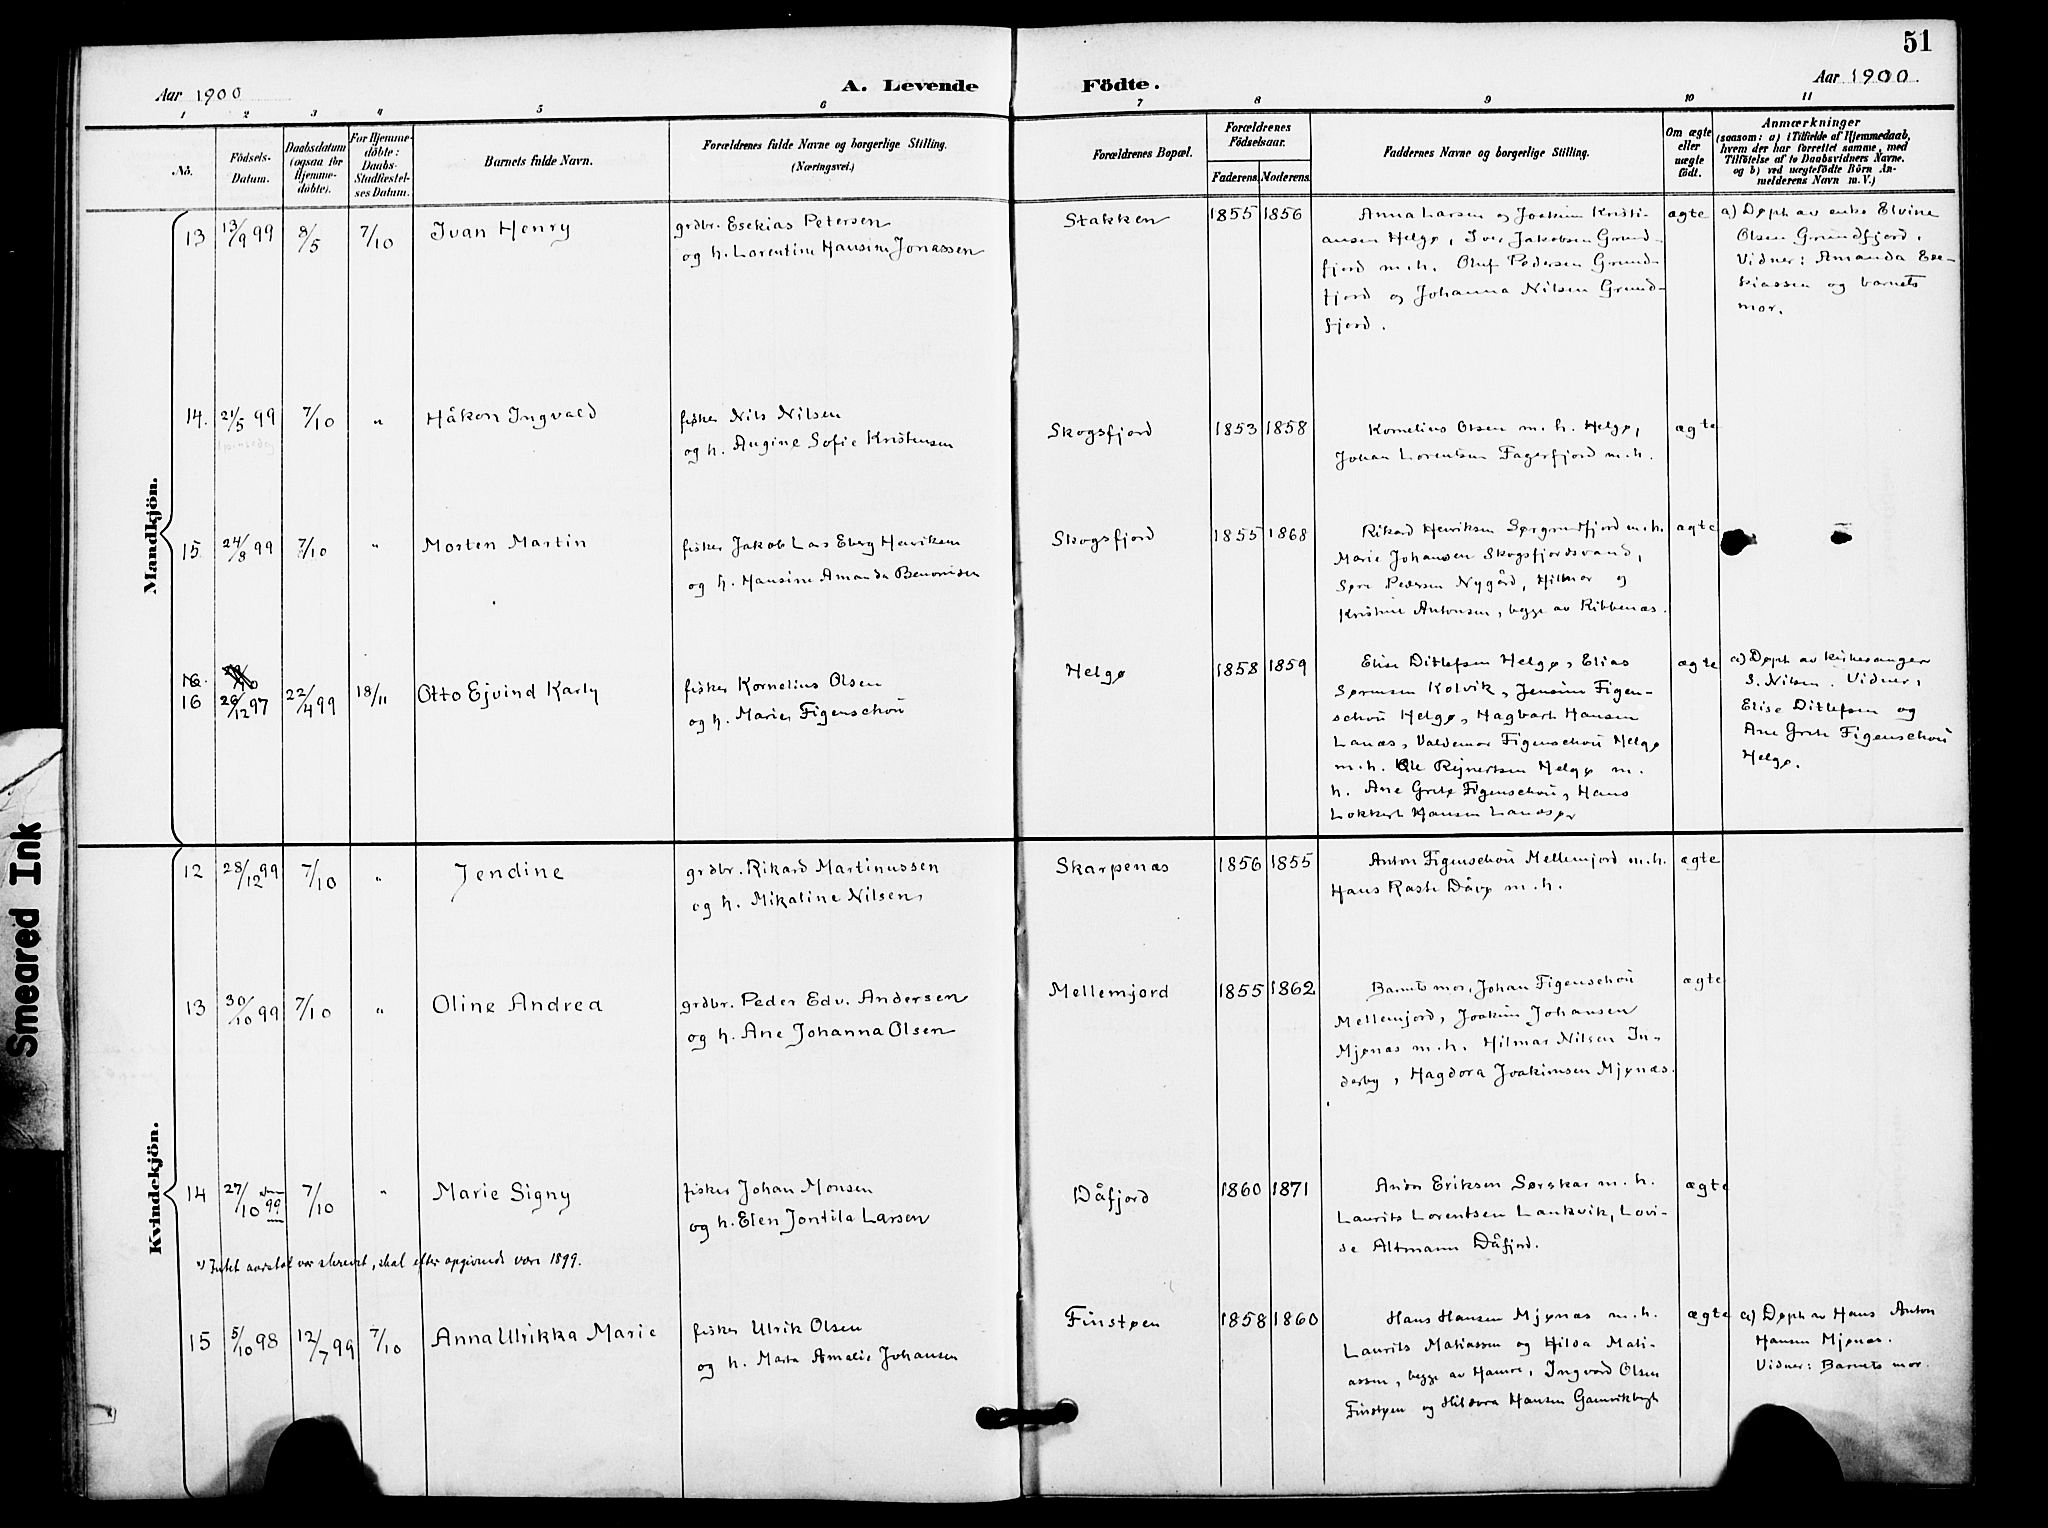 51
Aar 1900
A. Levende Födte.
Aar 1900
1 2 3 4 5 6 7 8 9 10 11
No.
Födsels-
Datum.
Daabsdatum
(ogsaa for
Hjemme-
døbte).
For Hjemme-
döbte:
Daabs-
Stadfæstel-
ses Datum.
Barnets fulde Navn.
Forældrenes fulde Navne og borgerlige Stilling.
(Næringsvei.)
Forældrenes Bopæl.
Forældrenes
Födselsaar.
Faderens. Moderens.
Faddernes Navne og borgerlige Stilling.
Om ægte
eller
uægte
födt.
Anmærkninger
(saasom: a) i Tilfælde af Hjemmedaab,
hvem der har forrettet samme, med
Tilföielse af to Daabsvidners Navne.
og b) ved uægtefödte Börn An-
melderens Navn m. V.)
Mandkjön.
13 13/9 99 8/5 7/10 Ivan Henry
grdbr. Esekias Petersen
og h. Lorentine Hansine Jonassen
Stakken 1855 1856
Anna Larsen og Joakim Kristi-
ansen Helgø, Iver Jakobsen Grund-
fjord m.h. Oluf Pedersen Grund-
fjord og Johanna Nilsen Grund-
fjord.
ægte
a) Døph av enke Elvine
Olsen Grundfjord.
Vidner: Amanda Ese-
kiassen og barnets
mor.
14. 21/5 99 7/10 " Håkon Ingvald
fisker Nils Nilsen
og h. Augine Sofie Kristensen
Skogsfjord 1853 1858
Kornelius Olsen m.h. Helgø,
Johan Lorentsen Fagerfjord m.h.
ægte
15 24/8 99 7/10 " Morten Martin
fisker Jakob Lars Eberg Henriksen
og h. Hansine Amanda Benonisen
Skogsfjord 1855 1868
Rikard Henriksen Sørgrundfjord m.h.
Marie Johansen Skogsfjordvand,
Søre Pedersen Nygård, Hilmar og
Kristine Antonsen, begge av Ribbenæs.
ægte
16.
16 26/12 97 22/4 99 18/11 Otto Ejvind Karly
fisker Kornelius Olsen
og h. Marie Figenschou
Helgø 1858 1859
Elise Ditlefsen Helgø, Elias
Sørensen Kolvik, Jensine Figen-
schou Helgø, Hagbart Hansen
Lanæs, Valdemar Figenschou Helgø
m.h. Ole Rejnertsen Helgø m.
h. Ane Grete Figenschou, Hans
Lokkert Hansen Lanæsør
ægte
a) Døph av kirkesanger
S. Nilsen. Vidner,
Elise Ditlefsen og
Ane Grete Figenschou
Helgø.
Kvindekjön.
12 28/12 99 7/10 " Jendine
grdbr. Rikard Martinussen
og h. Mikaline Nilsen,
Skarpenæs 1856 1855
Anton Figenschou Mellemjord m.h.
Hans Rasch Dåvø m.h.
ægte
13 30/10 99 7/10 " Oline Andrea
grdbr. Peder Edv. Andersen
og h. Ane Johanna Olsen
Mellemjord 1855 1862
Barnets mor, Johan Figenschou
Mellemjord, Joakim Johansen
Mjønæs m.h. Hilmar Nilsen In-
derby, Hagdora Joakimsen Mjønæs.
ægte
14 27/10 99 7/10 " Marie Signy
fisker Johan Monsen
og h. Elen Jontila Larsen
Dåfjord 1860 1871
Andor Eriksen Sørskar m.h.
Laurits Lorentsen Lankvik, Lovi-
se Altmann Dåfjord.
ægte
Intet aarstal var skrevet, skal efter opgivende være 1899.
15 5/10 98 12/7 99 7/10 Anna Ulrikka Marie
fisker Ulrik Olsen
og h. Marta Amalie Johansen
Finstøen 1858 1860
Hans Hansen Mjønæs m.h.
Laurits Matiassen og Hilda Mati-
assen, begge av Hamre, Ingvard Olsen
Finstøen og Hildora Hansen Gamvikbugt
ægte
a) Døph av Hans Anton
Hansen Mjønæs.
Vidner: Barnets mor.
Smeared Ink